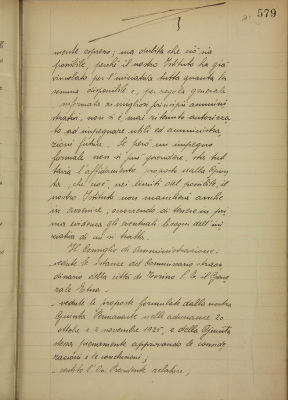 579
mente espresso; ma dubita che ciò sia
possibile, perchè il nostro Istituto ha già
vincolato per l'iniziativa tutta quanta la
somma disponibile e, per regola generale
informata ai migliori principii ammini
strativi, non si è mai ritenuto autorizza
to ad impegnare utili ed amministra
zioni future. Se però un impegno
formale non si può prendere, sta tut
tavia l'affidamento esposto dalla Giun
ta, che cioè, nei limiti del possibile, il
nostro Istituto non mancherà anche
in avvenire, di tenere in
evidenza gli eventuali bisogni dell'ini
ziativa di cui si tratta.
Il Consiglio di Amministrazione:
- vedute le istanze del Commissario straor
dinario della città di Torino
- vedute le proposte formulate dalla nostra
Giunta Permanente nelle adunanze 20
ottobre e 2 novembre 1925, e della Giunta
stessa pienamente approvando le conside
razioni e le conclusioni;
- sentito l'On. Presidente relatore;